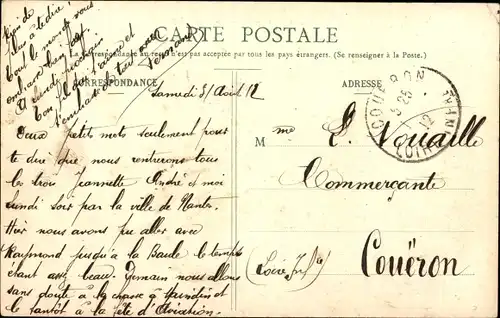 CARTE POSTALE
La Correspondance au recto n'est pas acceptée par tous les pays étrangers. (Se renseigner à la Poste.)
CORRESPONDANCE
ADRESSE
Samedi 3/ Août 12
Deux petits mots seulement pour
te dire que nous rentrerons tous
les trois Jeannette André et moi
lundi soir par la ville de Nantes.
Hier nous avons pu aller avec
Raymond jusqu'à la Baule le temps
étant assez beau. Demain nous allons
sans doute à la chasse à et
le tantôt à la fête d'Aviation.
à te dire
tout le monde vous
embrasse bien fort
A lundi
Ton fils qui t'aime et
t'embrasse de tout cœur
Fernand
COUERON
LOIRE INFRE
12
Mme E. Nouaille
Commerçante
(Loire Infre)
Couëron